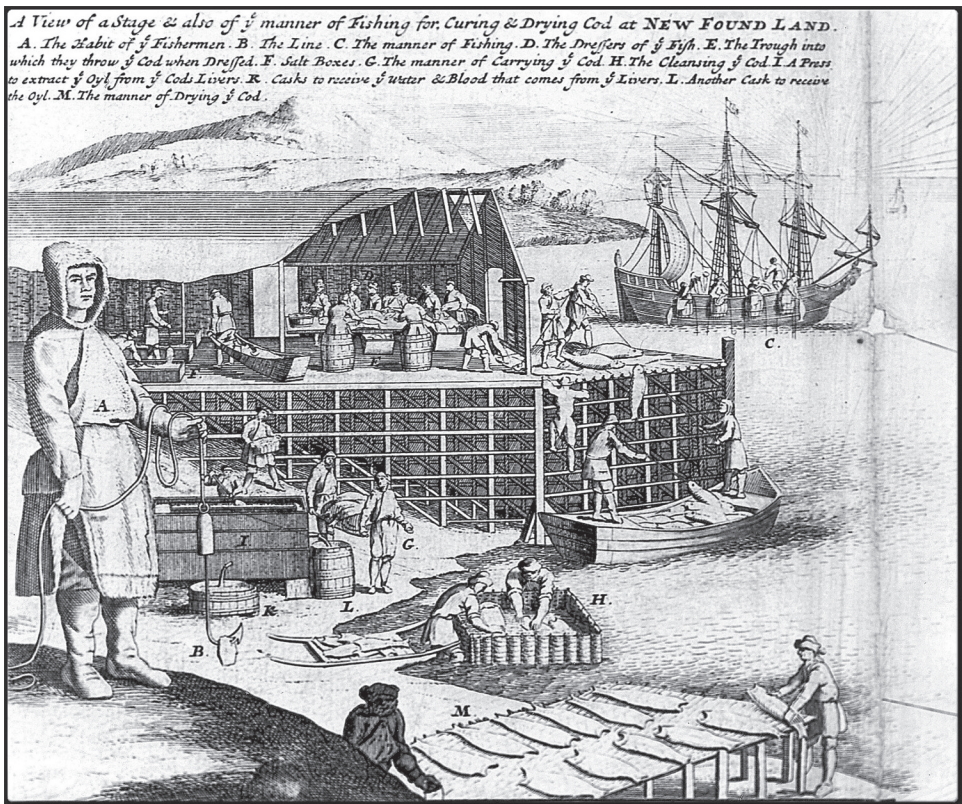 A View of a Stage & also of ẙ manner of Fishing for, Curing & Drying Cod at NEW FOUND LAND.
A. The Habit of ẙ Fishermen. B. The Line. C. The manner of Fishing. D. The Dressers of ẙ Fish. E. The Trough into
which they throw ẙ Cod when Dressed. F. Salt Boxes. G. The manner of Carrying ẙ Cod. H. The Cleansing ẙ Cod. I. A Press
to extract ẙ Oyl from ẙ Cods Livers. K. Casks to receive ẙ Water & Blood that comes from ẙ Livers. L. Another Cask to receive
the Oyl. M. The manner of Drying ẙ Cod.
D
C.
E
F.
A
G.
I
K
L
H.
B
M